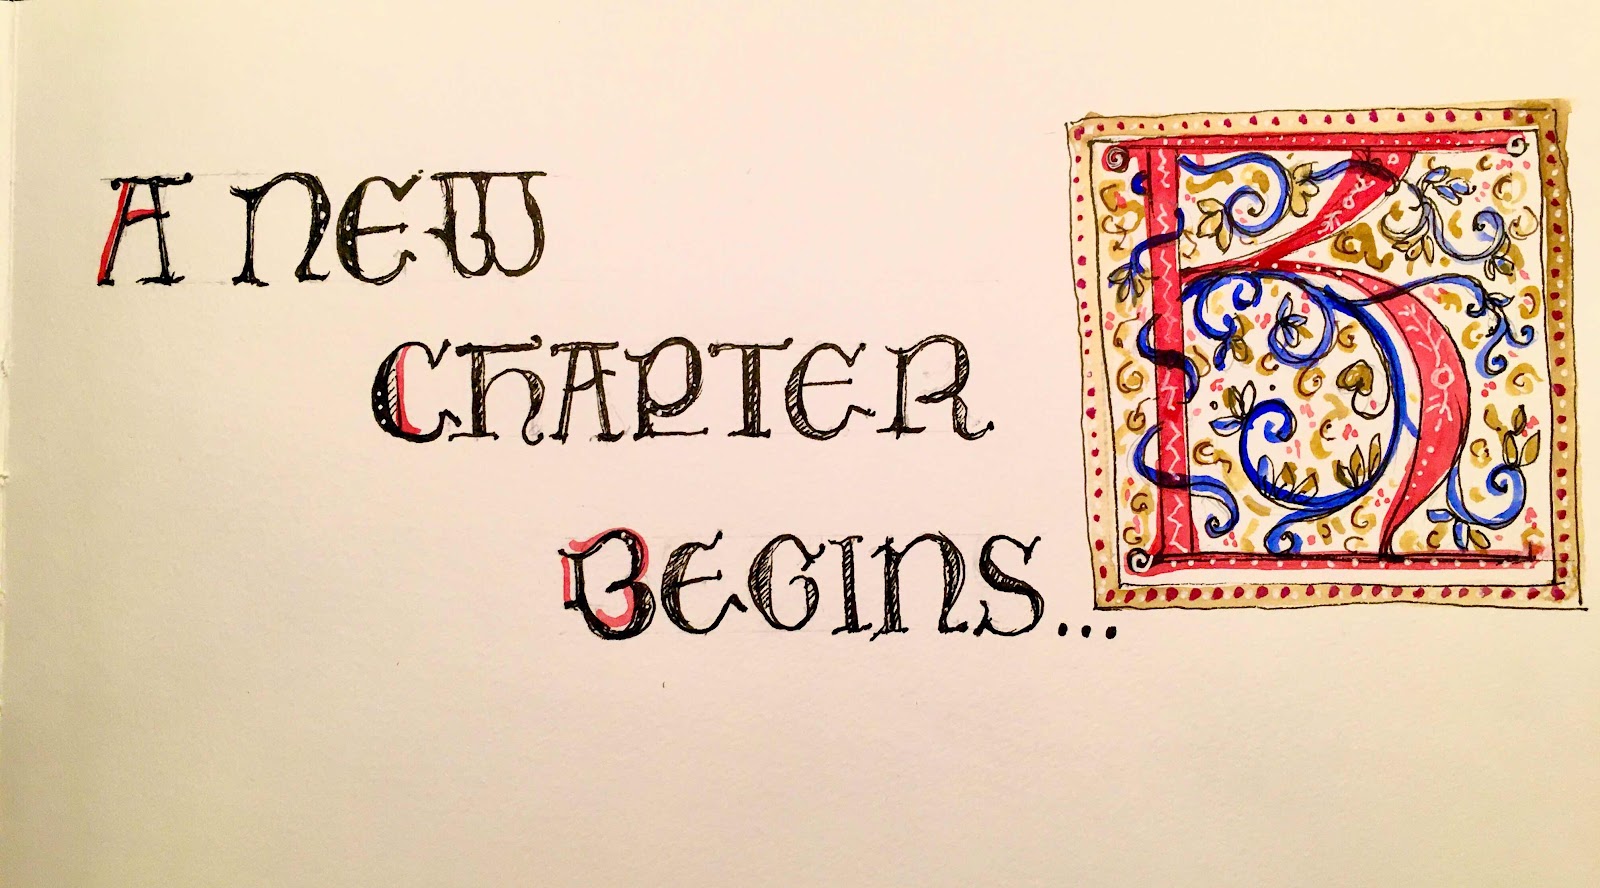 A NEW
CHAPTER
BEGINS...
K